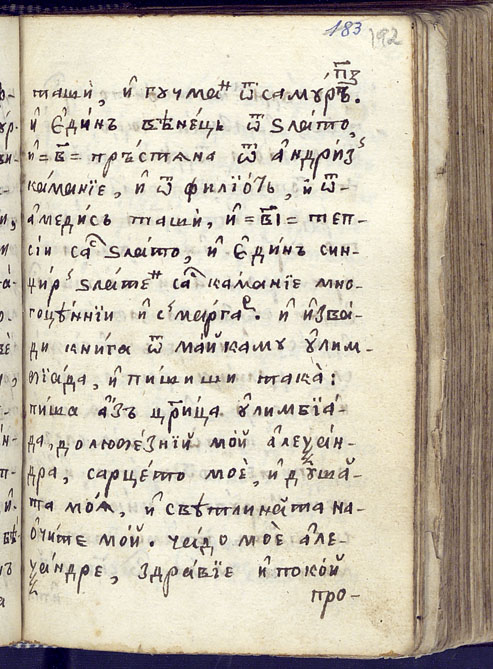 183 192
п҃з
таши, и҆ гучмаⷩ҇ ѿ самꙋ́ръ.
и҆ є҆ди́нъ вѣне́ць ѿ ѕла́то,
и҆ =в҃= прьстѧна ѿ а҆ндри́ꙁ
ка́манїе, и҆ ѿ филїо́ть, и҆ ѿ-
а҆меди́сь таши, и҆ =в҃і= теп-
сіи саⷭ҇ ѕла́то, и҆ є҆ди́нъ син-
џирⸯ ѕла́теⷩ҇ саⷭ҇ ка́манїе мно-
гоцѣ́ннїи и҆ сⸯ ма́ргаⷬ҇. и҆ и҆ꙁва́-
ди книга ѿ ма́йка мꙋ ѹ҆лим-
пїа́да, и҆ пи́шиши така̀:
пи́ша а҆́ꙁъ цр҃и́ца ѹ҆лимбїа́-
да, до любе́ꙁнїй мо́й а҆леѯа́н-
дра, сарце́то моѐ, и҆ дꙋ́ша-
та моѧ̀, и҆ свѣтлина́та на-
ѻ҆чи́те мо́й. ча́до моѐ а҆ле-
ѯа́ндре, ꙁдра́вїе и҆ поко́й
про-